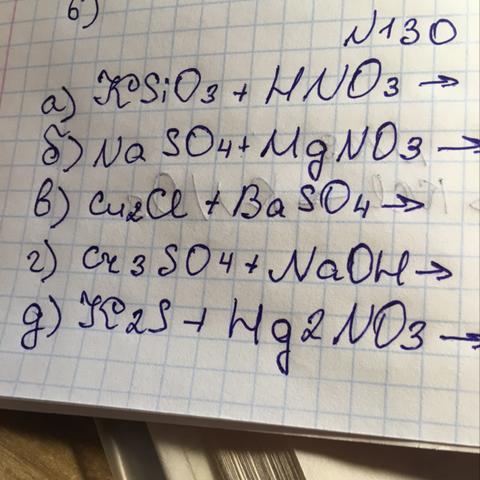 б)
N130
а) KSiO3 + HNO3 →
б) Na SO4 + MgNO3 →
в) Cu2Cl + BaSO4 →
г) Cr3SO4 + NaOH →
д) K2S + Hg2NO3 →